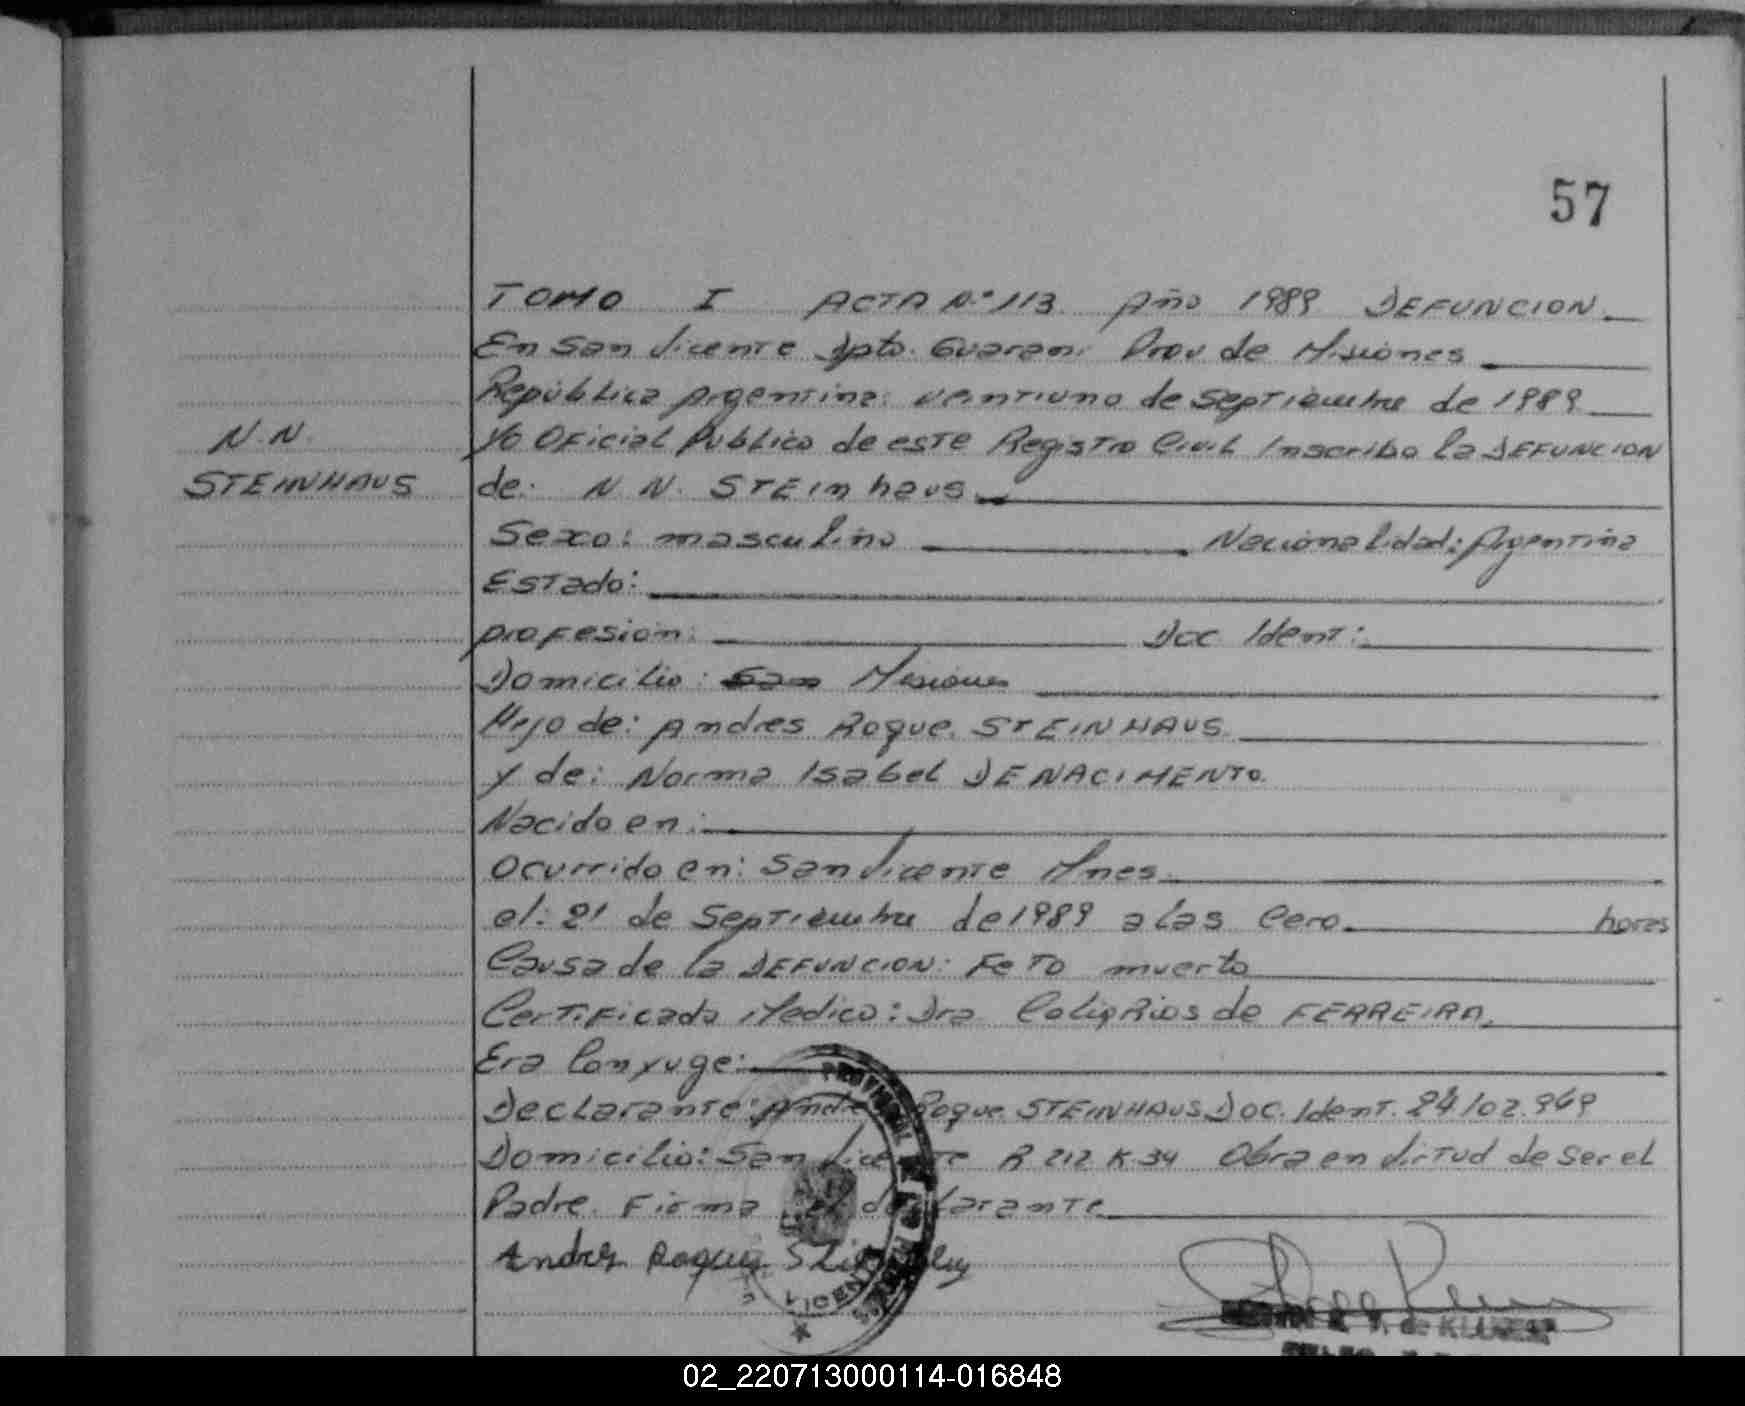 57
TOMO I ACTA N.º 113. Año 1989 DEFUNCION.
En San Vicente Dpto. Guarani Prov de Misiones
República Argentina: veintiuno de Septiembre de 1989
N.N. Yo Oficial Publico de este Registro Civil Inscribo la DEFUNCION
STEINHAUS de: N N. STEINhaus
Sexo: masculino Nacionalidad: Argentina
Estado:
profesión: Doc Ident:
Domicilio: San Misiones
Hijo de: Andres Roque. STEINHAUS
y de: Norma Isabel DENACIMENTO.
Nacido en:
Ocurrido en: San Vicente Mnes.
el: 21 de Septiembre de 1989 a las Cero. horas
Causa de la DEFUNCION: FeTo muerto
Certificado Medico: Dra Rios de FERREIRA.
Era Conyuge:
Declarante: Andre Roque. STEINHAUS Doc. Ident. 24/02.969
Domicilio: San Vicente R 212 K 34 Obra en virtud de ser el
Padre. Firma el declarante
Andres Roque
PROVINCIAL
VICENTE
de KLU
02_220713000114-016848